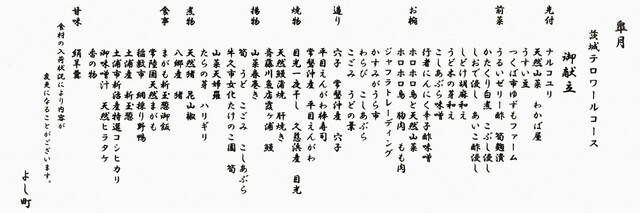 皐月
茨城テロワールコース
御献立
先付
ナルコユリ
天然山菜 わかば屋
うすい豆
つくば市ゆずもファーム
前菜
うるいゼリー酢 筍麹漬
かたくり白煮 こぶし浸し
しおで浸し あいこ酢浸し
しどけ胡麻和え
うど木の芽和え
こしあぶら味噌
行者にんにく辛子酢味噌
お椀
ホロホロ鳥と天然山菜
ホロホロ鳥 胸肉 もも肉
ジャフラトレーディング
かすみがうら市
わらび こしあぶら
こごみ うどの葉
造り
穴子 常磐沖産 穴子
平目えんがわ棒寿司
常磐沖産 平目えんがわ
焼物
目光一夜干し 久慈浜産 目光
天然鰻蒲焼 肝焼き
斉藤川魚店霞ヶ浦 鰻
揚物
山菜春巻き
筍 うど こごみ こしあぶら
牛久市女化たけのこ園 筍
山菜天婦羅
たらの芽 ハリギリ
煮物
天然猪 昆山椒
八郷産 猪
食事
まがも新玉葱御飯
常陸国天然まがも
稲敷市網捕り野鴨
土浦産 新玉葱
土浦市新治産特選コシヒカリ
御味噌汁 天然ヒラタケ
香の物
甘味
絹羊羹
食材の入荷状況により内容が
変更になることがございます。
よし町